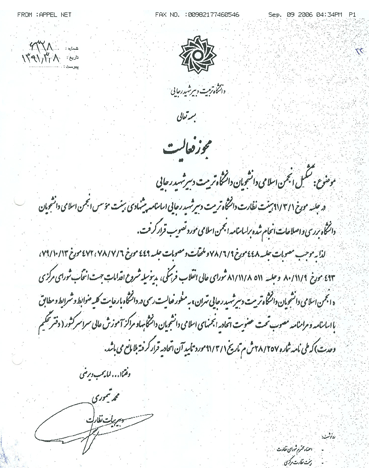 FROM :APPEL NET FAX NO. :00982177460546 Sep. 09 2006 04:34PM P1
شماره :
تاریخ :
پیوست :
دانشگاه تربیت دبیر شهید رجایی
بسمه تعالی
مجوز فعالیت
موضوع: تشکیل انجمن اسلامی دانشجویان دانشگاه تربیت دبیر شهید رجایی
در جلسه مورخ ۹۱/۳/۱ هیئت نظارت دانشگاه تربیت دبیر شهید رجایی اساسنامه پیشنهادی هیئت مؤسس انجمن اسلامی دانشجویان
دانشگاه بررسی و اصلاحات انجام شده بر اساسنامه انجمن اسلامی مورد تصویب قرار گرفت.
لذا به موجب مصوبات جلسه ۴۴۸ مورخ ۷۸/۶/۹ و ملحقات و مصوبات جلسه ۴۴۹ مورخ ۷۸/۷/۶، ۴۷۳ مورخ ۷۹/۱۰/۱۳،
۴۹۳ مورخ ۸۰/۱۱/۹ و جلسه ۵۱۱ ۸۱/۱۱/۸ شورای عالی انقلاب فرهنگی، بدینوسیله شروع اقدامات جهت انتخاب شورای مرکزی
انجمن اسلامی دانشجویان دانشگاه تربیت دبیر شهید رجایی تهران، به منظور فعالیت رسمی در دانشگاه با رعایت کلیه ضوابط و شرایط و مطابق
با اساسنامه و مرامنامه مصوب تحت عضویت اتحادیه انجمنهای اسلامی دانشجویان دانشگاهها و مراکز آموزش عالی سراسر کشور (دفتر تحکیم
وحدت) که طی نامه شماره ۲۸/۲۵۷/ش م تاریخ ۹۱/۳/۱ مورد تایید آن اتحادیه قرار گرفته بلامانع می باشد.
وفقنا ا... لما یحب و یرضی
محمد تیموری
دبیر هیات نظارت
هیئت نظارت مرکزی